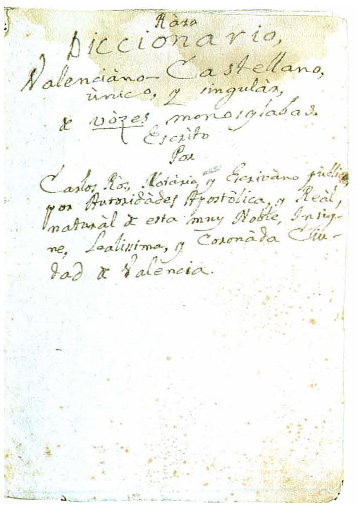 Ràro
Diccionario,
Valenciàno Castellano,
ùnico, y singulàr,
de vòzes monosylabas.
Escrìto
Por
Carlos Ròs, Notàrio, y Escrivàno publico
por Autoridàdes Apostòlica, y Reàl,
naturàl de esta muy Noble, Insig-
ne, Lealissima, y Coronàda Ciu-
dad de Valencia.